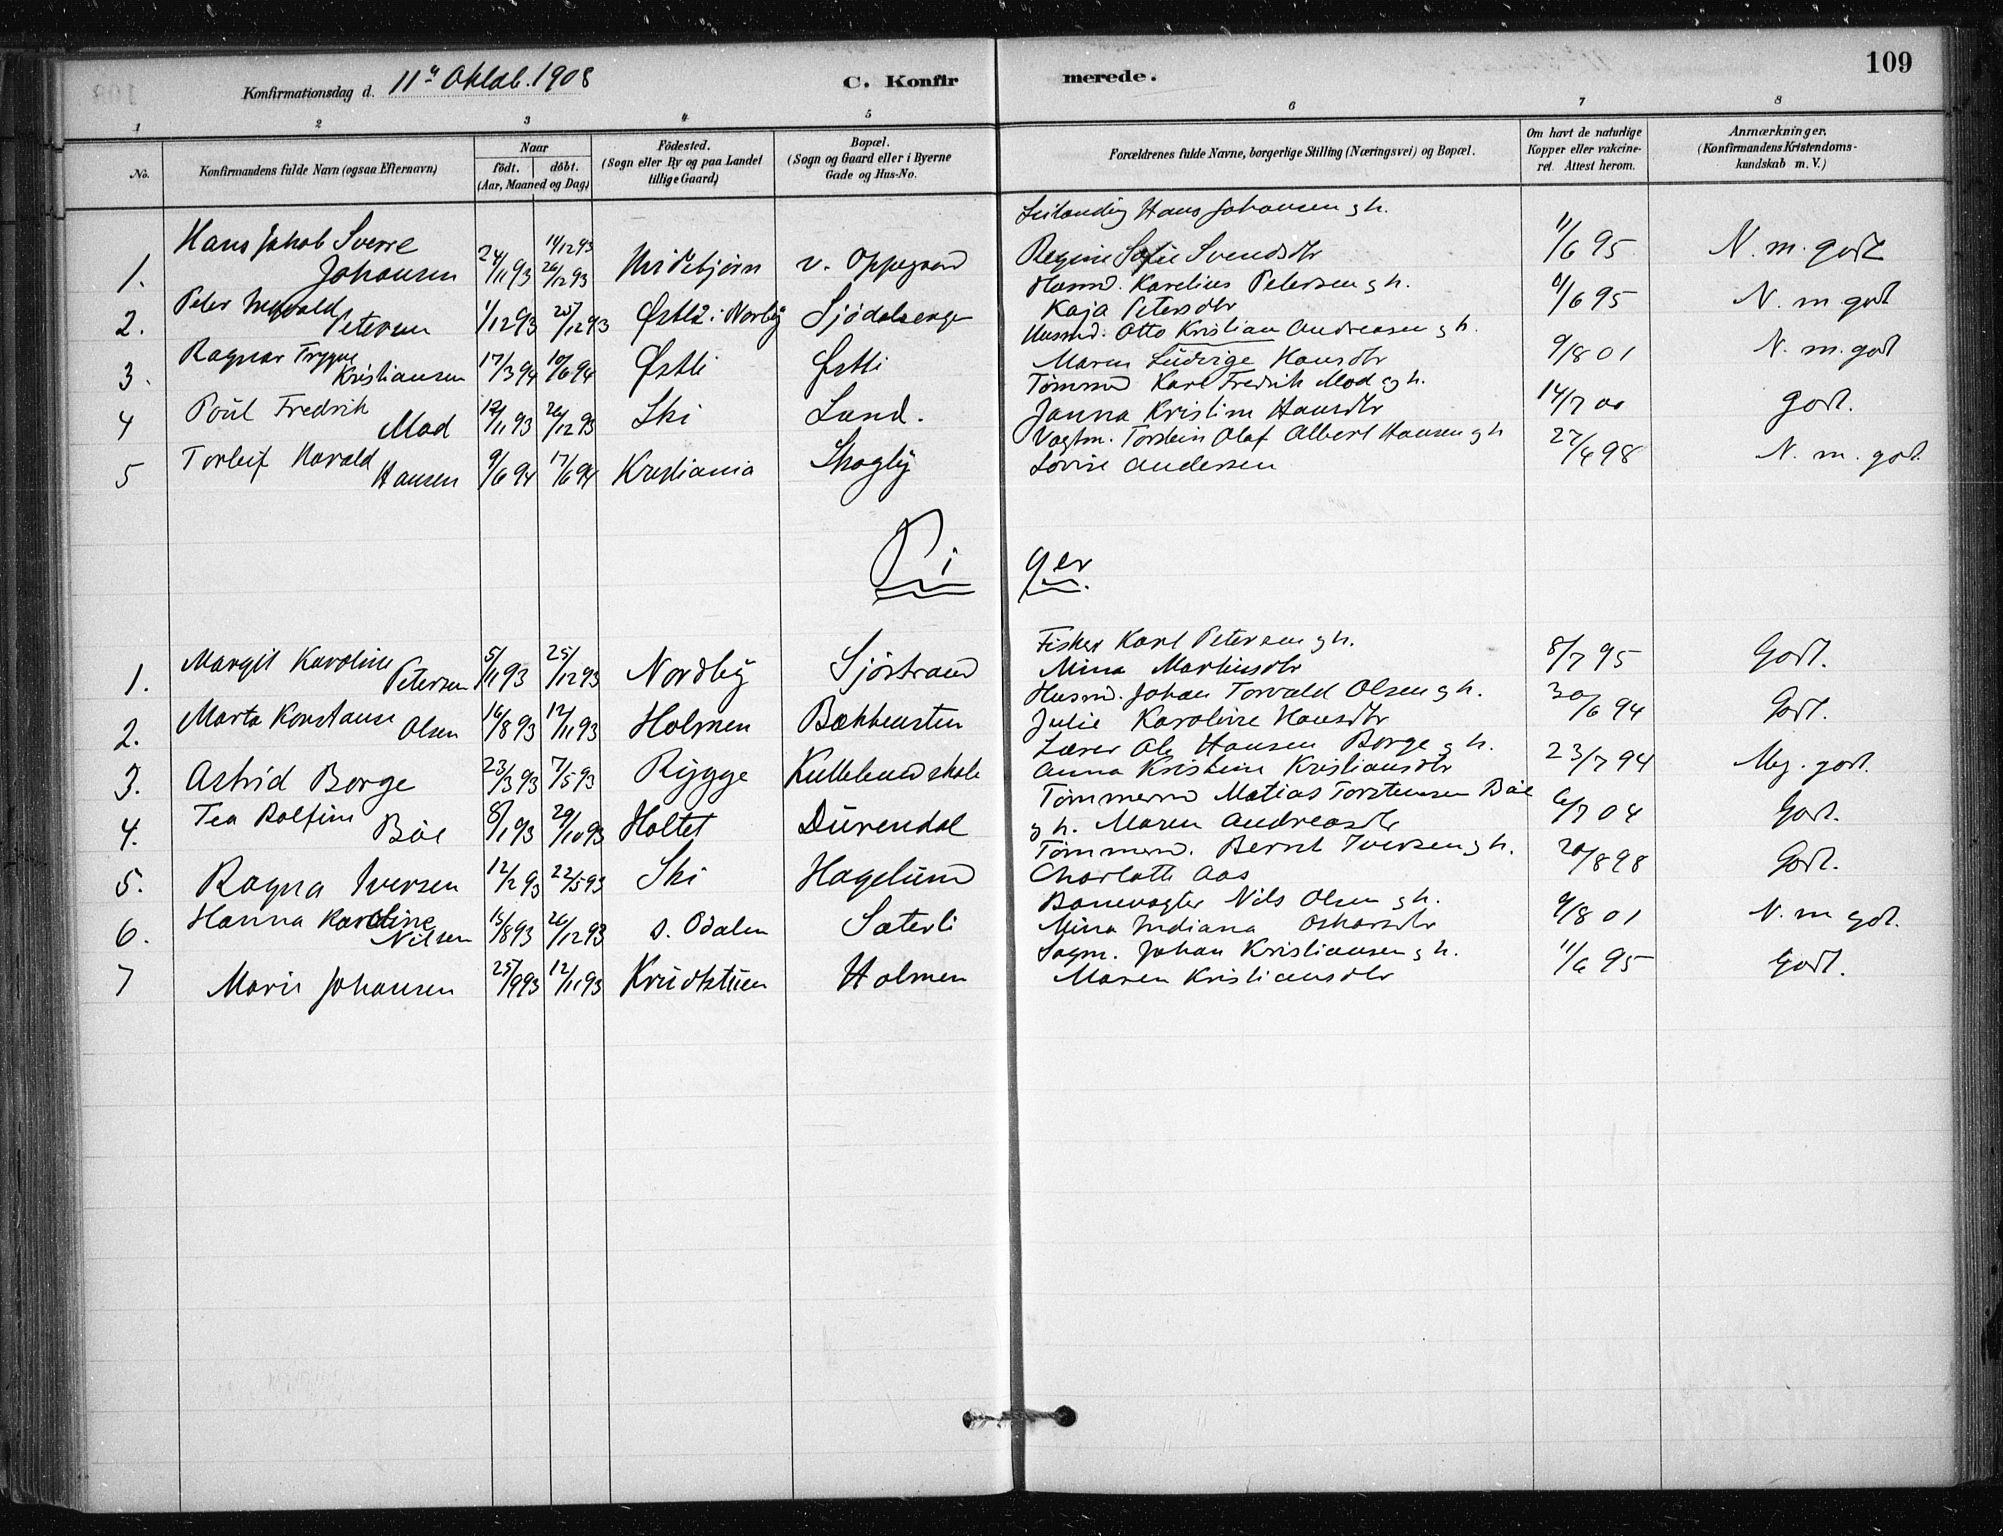 109
Konfirmationsdag d. 11te Oktob. 1908
C. Konfirmerede.
1 2 3 4 5 6 7 8
No.
Konfirmandens fulde Navn (ogsaa Efternavn)
Naar
födt. döbt.
(Aar, Maaned og Dag)
Födested.
(Sogn eller By og paa Landet
tillige Gaard)
Bopæl.
(Sogn og Gaard eller i Byerne
Gade og Hus-No.
Forældrenes fulde Navne, borgerlige Stilling (Næringsvei) og Bopæl.
Om havt de naturlige
Kopper eller vakcine-
ret. Attest herom.
Anmærkninger.
(Konfirmandens Kristendoms-
kundskab m. V.)
1. Hans Jakob Sverre Johansen 24/11 93 14/12 93 26/12 93 v. Oppegaard Hans Johansen g h. Regine Sofie Svendsdtr 11/6 95 N. m. godt
2. Peter Petersen 1/12 93 25/12 93 Østli i Norby Sjödalsenga Husmd. Karelius Petersen g h. Kaja Petersdtr 11/6 95 N. m godt
3. Ragnar Trygve Kristiansen 17/3 94 10/6 94 Østli Østli Husmd. Otto Kristian Andreasen g h. Maren Ludvige Hansdtr 9/8 01 N. m. god
4 Poul Fredrik Mod 12/11 93 26/12 93 Ski Lund. Tømmerm Karl Fredrik Mod og h. Janna Kristine Hansdtr 14/7 00 godt.
5 Torleif Harald Hansen 9/6 94 17/6 94 Kristiania Skogly Vagtm. Torstein Olaf Albert Hansen g h Lovise Andersen 27/4 98 N. m. god.
Piger
1. Margit Karoline Petersen 5/11 93 25/12 93 Nordby Sjöstrand Fisker Karl Petersen g h. Mina Martinsdtr 8/7 95 Godt.
2. Marta Konstanse Olsen 16/8 93 12/11 93 Holmen Bækkensten Husmd. Johan Torvald Olsen g h. Julie Karoline Hansdtr 30/6 94 Godt.
3. Astrid Borge 23/3 93 7/5 93 Rygge Kullebundskole Lærer Ole Hansen Borge g h. Anna Kristine Kristiansdtr 23/7 94 Meg. godt.
4. Tea Rolfine Böe 8/1 93 29/10 93 Holtet Dürendal Tömmerm Matias Torstensen Böe g h. Maren Andreasdtr 6/7 04 Godt.
5. Ragna Iversen 12/2 93 22/5 93 Ski Hagelund Tömmerm. Bernt Iversen g h. Charlotte Aas 20/8 98 Godt.
6. Hanna Karoline Nilsen 15/8 93 26/12 93 s. Odalen Sæterli Banevagter Nils Olsen g h. Mina Indiana Oskarsdtr 9/8 01 N. m godt.
7 Marie Johansen 25/9 93 12/11 93 Krudtstuen Holmen Sagm. Johan Kristiansen g h. Maren Kristiansdtr 11/6 95 Godt.